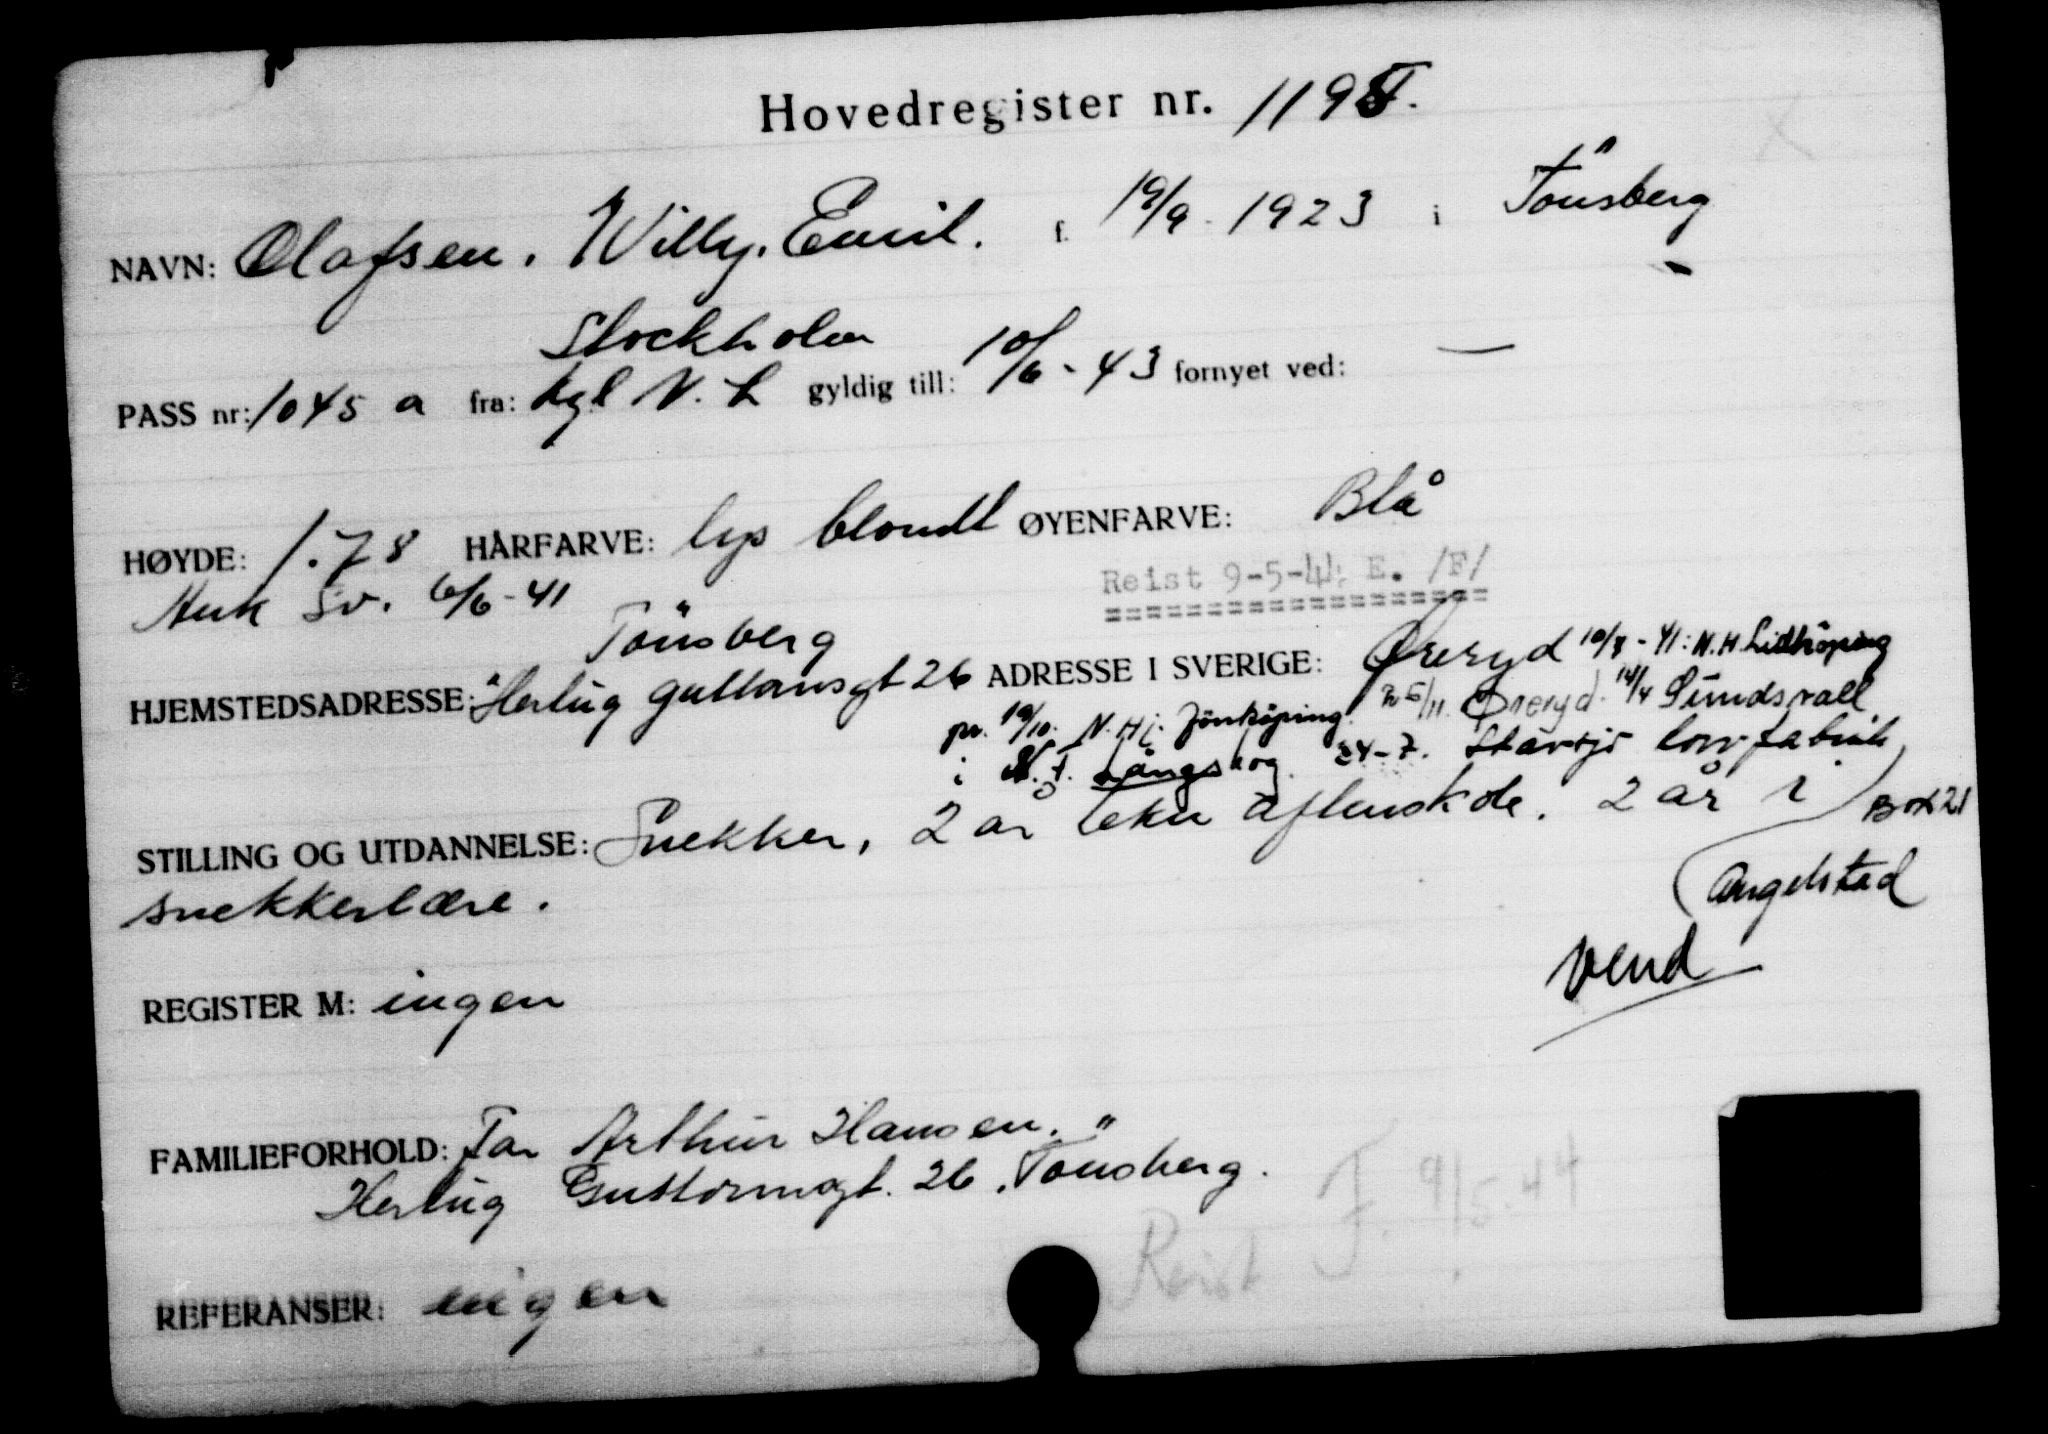 Hovedregister nr. 1195.
NAVN: Olafsen. Willy. Emil. f. 19/9 - 1923 i Tönsberg
Stockholm
PASS nr: 1045 a fra: Kgl N. L gyldig till: 10/6 - 43 fornyet ved: —
HØYDE: 1.78 HÅRFARVE: lys blondt ØYENFARVE: Blå
Ank Sv. 6/6 - 41
Reist 9-5-44 E. /F/
Tönsberg
HJEMSTEDSADRESSE: Herlug guttormsgt 26 ADRESSE I SVERIGE: Öreryd 10/8 - 41: N.H. Lidköping
pr. 19/10. N.H. i Jönköping. 25/11. Öreryd. 14/4 Sundsvall
i Långskog. 24-7. Stavsjö fabrik
STILLING OG UTDANNELSE: Snekker, 2 år tekn aftenskole. 2 år i Box 21
snekkerlære.
Angelstad
Vend
REGISTER M: ingen
FAMILIEFORHOLD: Far Arthur Hansen.
Herlug Guttormsgt. 26, Tönsberg.
Reist F. 9/5-44
REFERANSER: ingen